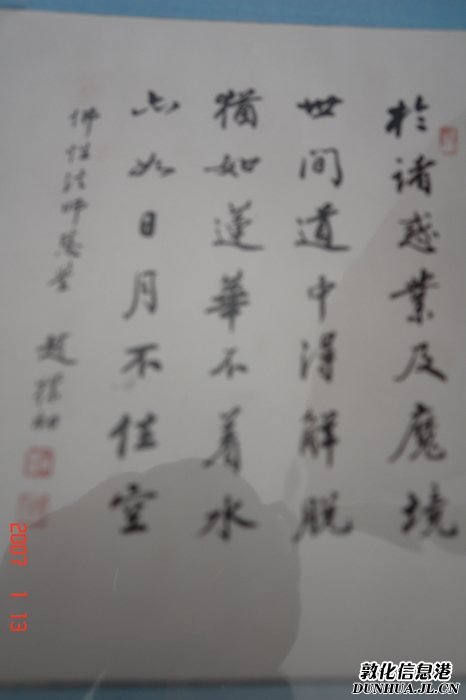 於诸惑業及魔境
世间道中得解脱
猶如蓮華不着水
亦如日月不住空
佛性法师慈鉴
趙樸初
2007 1 13
敦化信息港
DUNHUA.JL.CN